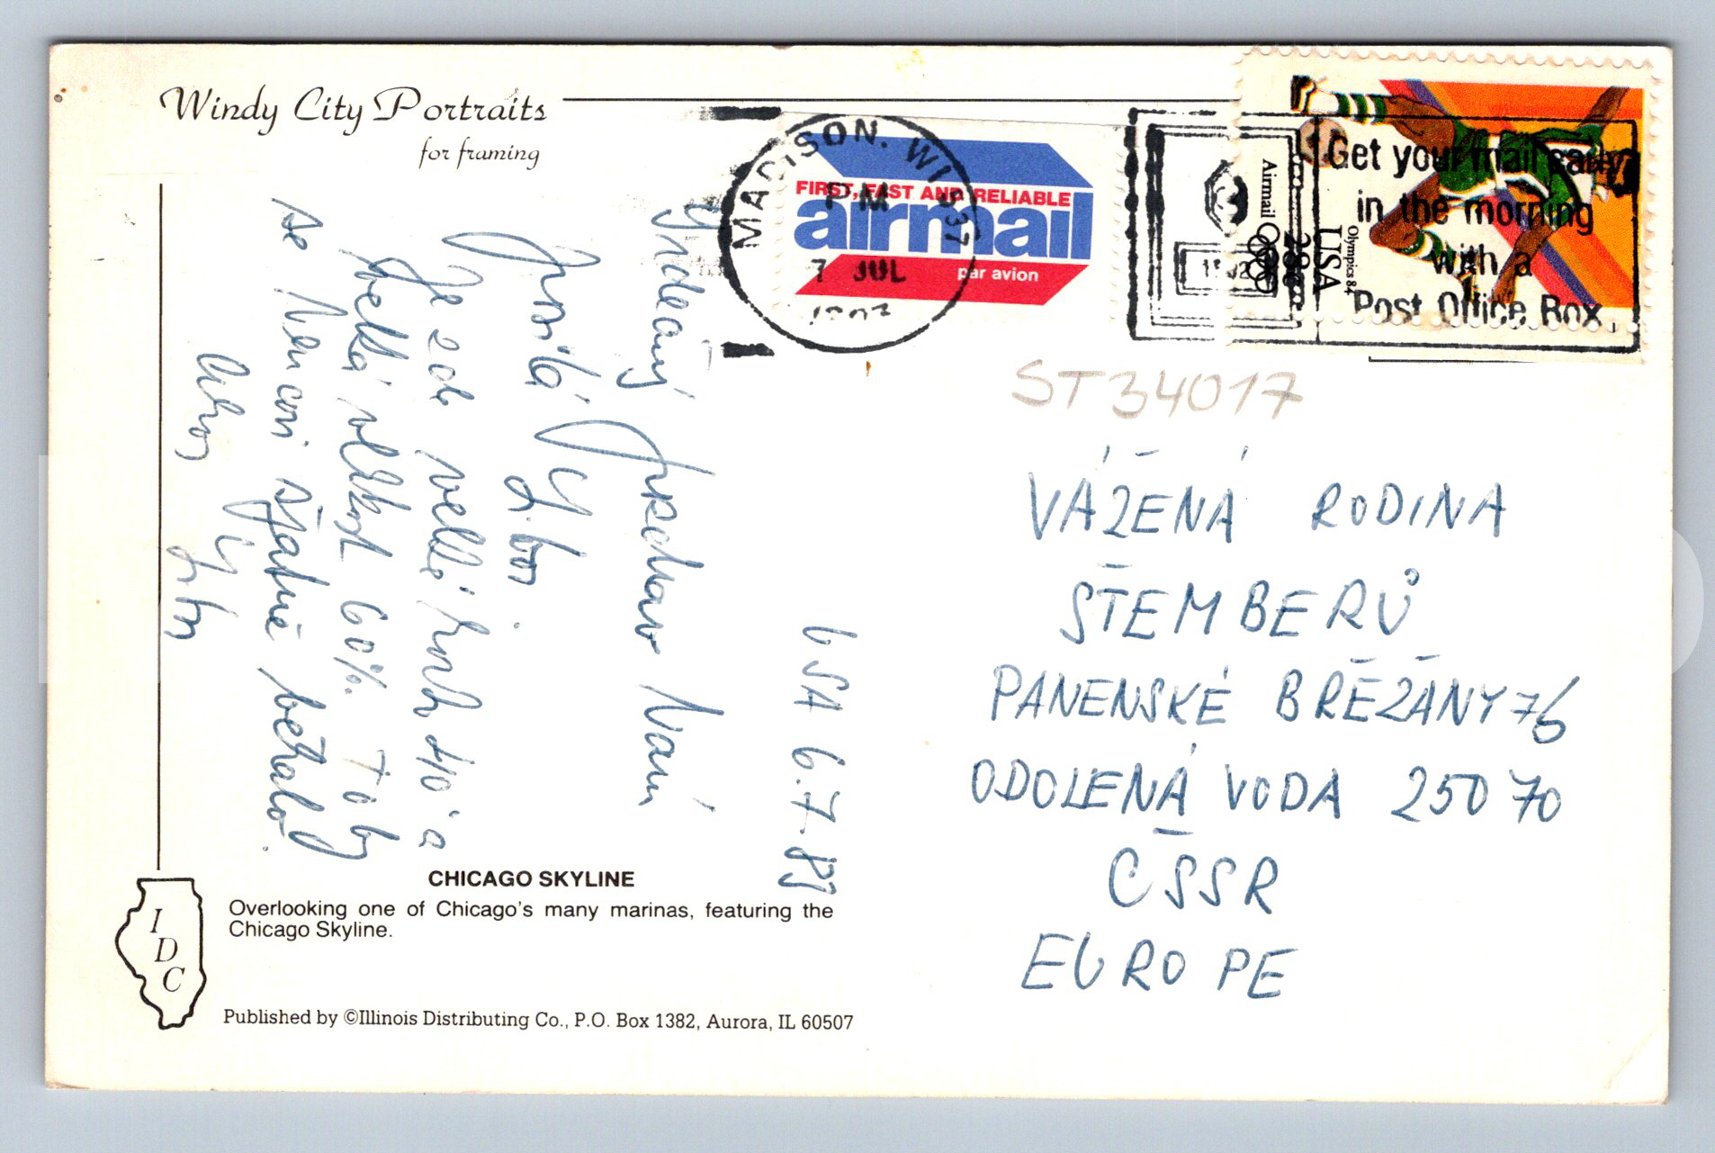 Windy City Portraits
for framing
MADISON, WI 537
PM
7 JUL
FIRST, FAST AND RELIABLE
airmail
par avion
Get your mail early
in the morning
with a
Post Office Box.
Airmail
Olympics 84
USA
28c
ST34017
USA 6.7.83
Srdečný pozdrav Vám
posílá
Libor
Je zde velké horko a
velká vlhkost 60%. To by
se Vencovi špatně běhalo
Ahoj
Libor
VÁŽENÁ RODINA
ŠTEMBERŮ
PANENSKÉ BŘEŽANY 76
ODOLENÁ VODA 250 70
ČSSR
EUROPE
CHICAGO SKYLINE
Overlooking one of Chicago's many marinas, featuring the
Chicago Skyline.
IDC
Published by ©Illinois Distributing Co., P.O. Box 1382, Aurora, IL 60507